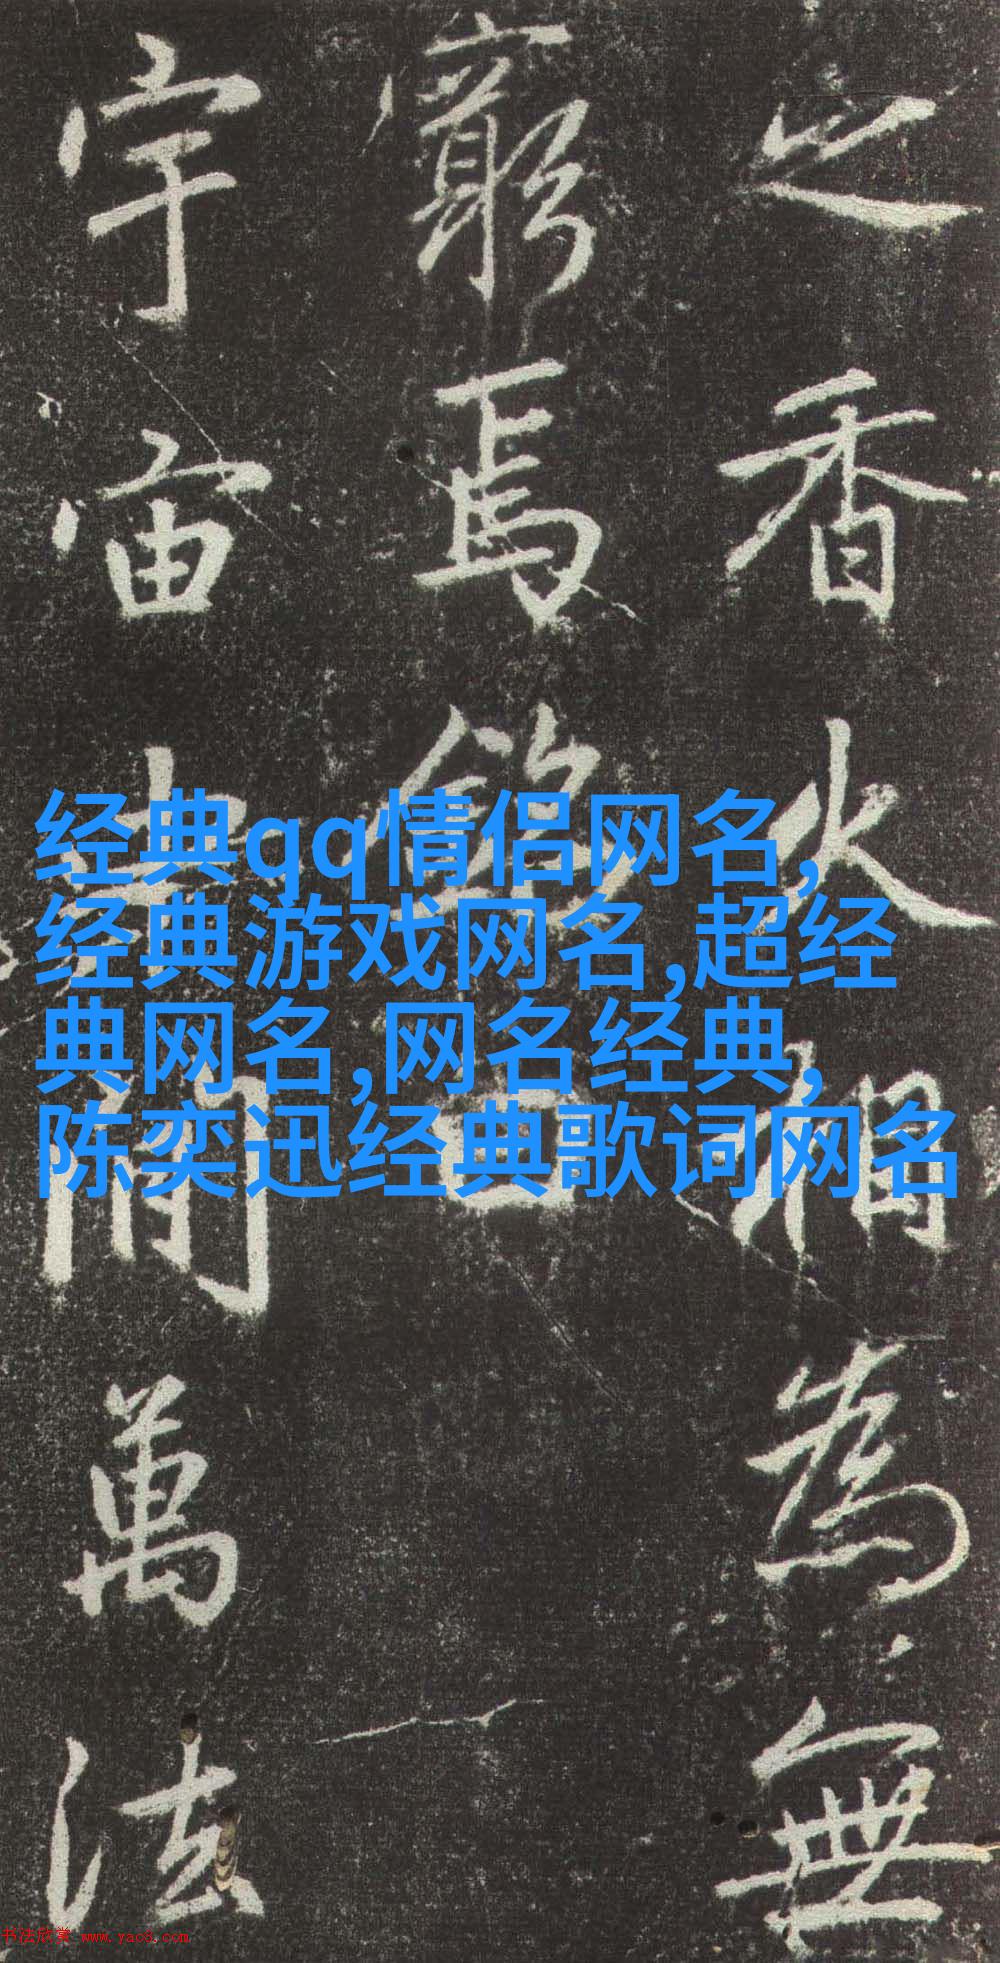 之香火相為無
窮焉銘曰
宇宙間萬法
经典qq情侣网名,
经典游戏网名,超经
典网名,网名经典,
陈奕迅经典歌词网名
书法欣赏 www.yac8.com